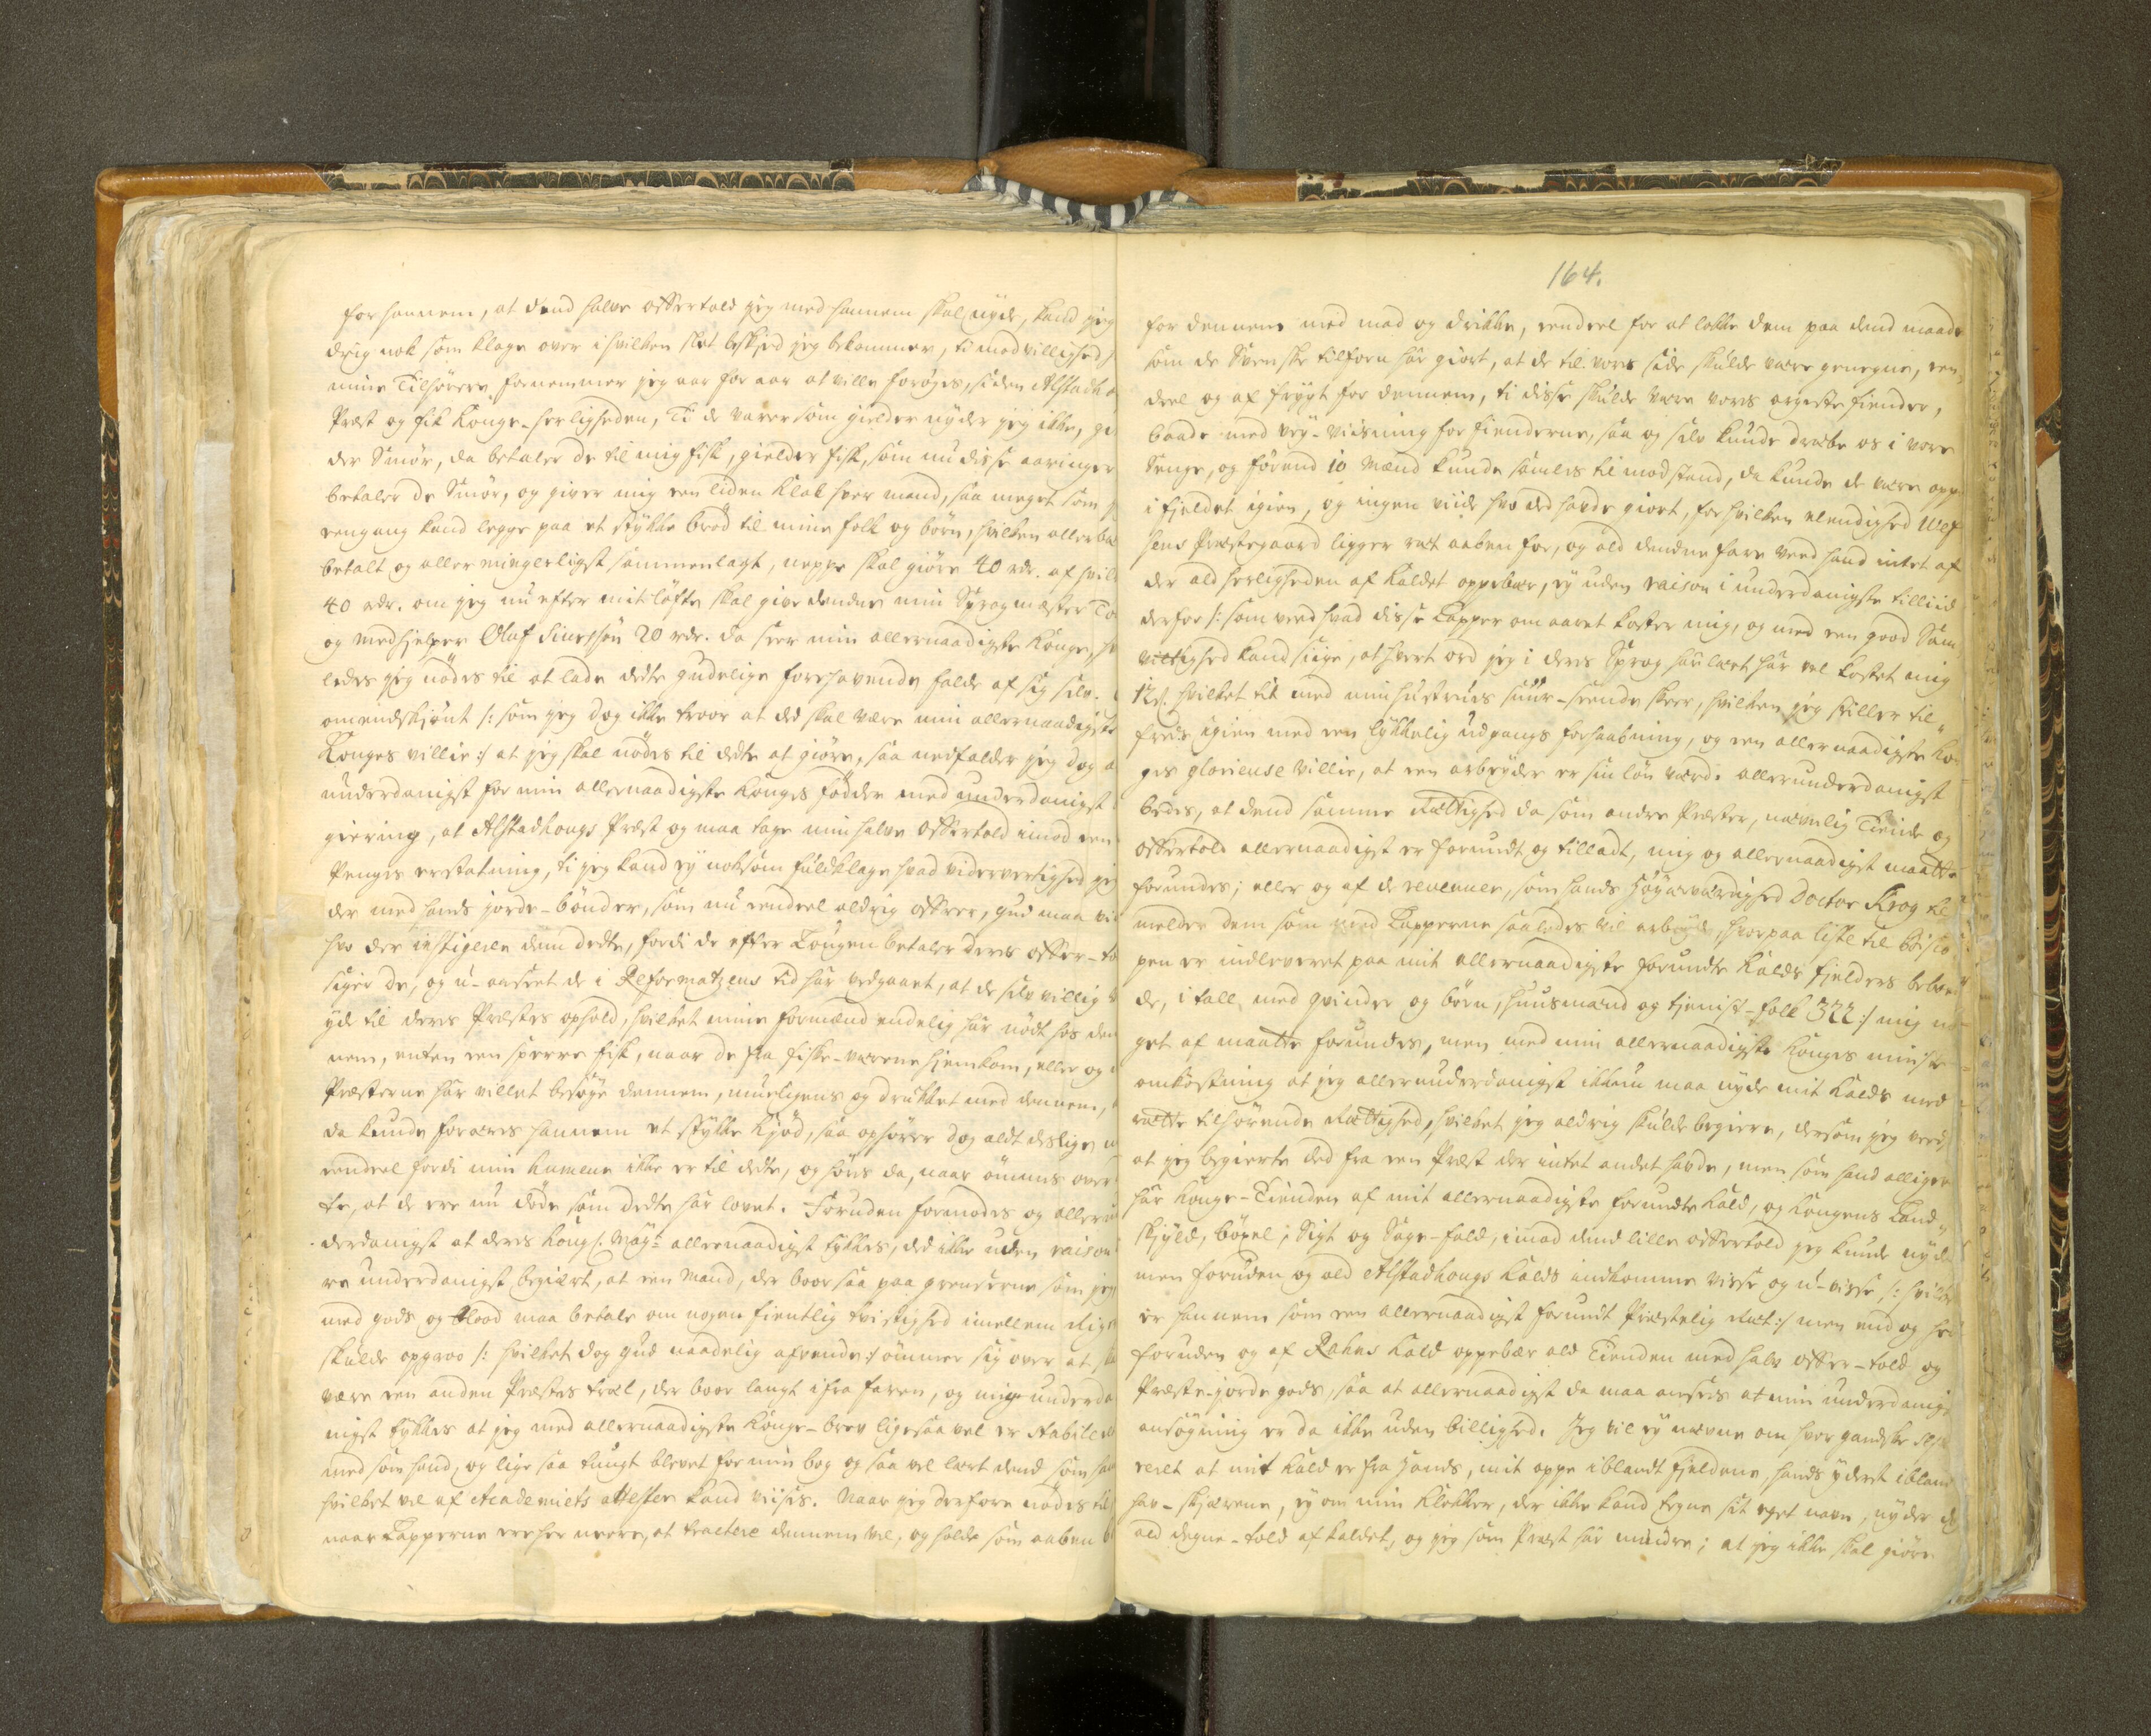 for hannem, at dend halve offertold jeg med hannem skal nyde, kand jeg
drig nok som klage over i hvilken slet beskjed jeg bekommer, ti modvillighed
mine Tilhörere fornemmer jeg aar for aar at ville forøges, siden Alstadh
Præst og fik Konge-herligheden, Ti de varer som gielder nyder jeg ikke,
der Smör, da betaler de til mig fisk, gielder fisk, som nu disse aaringer
betaler de Smör, og giver mig een liden Klak hver mand, saa meget som
eengang kand legge paa et stykke bröd til mine folk og börn, hvilken aller
betalt og aller sammenlagt, neppe skal giöre 40 rdr. af
40 rdr. om jeg nu efter mit löfte skal give dendne min Sprogmester
og medhjelper Oluf 20 rdr. da seer min allernaadigste Konge,
ledes jeg nödes til at lade dette gudelige forehavende falde af sig selv.
omendskjönt /: som jeg dog ikke troer at det skal være min allernaadigste
Konges villie :/ at jeg skal nödes til dette at giöre, saa nedfalder jeg dog
underdanigst for min allernaadigste Konges födder med underdanigst
giering, at Alstadhougs Præst og maa tage min halve offertold imod een
Penges erstatning, ti jeg kand ey noksom fuldklage hvad vidervertighed jeg
der med hands jorde-bönder, som nu eendeel aldrig offrer, gud maa
hvo der instigerer dem dette, fordi de efter Lougen betaler deres offer-
siger de, og u-anseet de i Reformatzens tid har vedgaaet, at de selv villig
yde til deres Præstes ophold, hvilket mine formænd endelig har nödt hos den
nem, enten een sperre fisk, naar de fra fiske-værene hjemkom, eller og
Præsterne har villet besöge dennem, og drukket med dennem,
da kunde foræres hannem et stykke Kjöd, saa ophörer dog aldt deslige
eendeel fordi min humeur ikke er til dette, og hörs da, naar ömmes over
te, at de ere nu döde som dette har lovet. Foruden formodes og
derdanigst at deres Kongl: May: allernaadigst tykkes, det ikke uden raison
re underdanigst begiært, at een Mand, der boer saa paa grenserne som jeg
med gods og blood maa betale om nogen fientlig tvistighed imellem
skulde opgroo /: hvilket dog gud naadelig afvende :/ ömmer sig over at
være een anden Præstes træl, der boer langt ifra faren, og mig underda
nigst tykkes at jeg med allernaadigste Konge-brev ligesaavel er stabile
med som hand, og lige saa tungt blevet for min bog og saa vel lært dend som
hvilket vel af Academiets attester kand viises. Naar jeg derfore nödes til
naar Lapperne ere her neere, at tractere dennem vel, og holde som aaben
164.
for dennem med mad og drikke, eendeel for at lokke dem paa dend maade
som de Svenske tilforn har giort, at de til vores side skulde være genegne, een
deel og af frygt for dennem, ti disse skulde være vores argeste fiender,
baade med vey-viisning for fienderne, saa og selv kunde dræbe os i vore
Senge, og förend 10 Mænd kunde samles til modstand, da kunde de være opp
i fjeldet igien, og ingen viide hvo det hafde giort, for hvilken elendighed Wef
sens Præstegaard ligger ret aaben for, og ald dendne fare veed hand intet af
der ald herligheden af kaldet oppebær, ey uden raison i underdanigste tilliid
derfor /: som veed hvad disse Lapper om aaret koster mig, og med een good Sam
vittighed kand siige, at hvert ord jeg i deres Sprog har lært har vel kostet mig
12 s. hvilket tit med min hustrues suur-seende skeer, hvilken jeg stiller til
freds igien med een lykkelig udgangs forhaabning, og een allernaadigste Ko
ges glorieuse villie, at een arbeyder er sin lön værd. allerunderdanigst
bedes, at dend samme Rættighed da som andre Præster, nævnlig Tiende og
offertold allernaadigst er forundt og tilladt, mig og allernaadigst maatte
forundes; eller og af de revenuer, som hands Höyærværdighed Doctor Krog til
melder dem som med Lapperne saaledes vil arbeyde, hvorpaa liste til bisco
pen er indleveret paa mit allernaadigste forundte Kalds fjelders beboen
de, i tall, med qvinder og börn, huusmænd og tjeniste-folk 322 :/ mig no
get af maatte forundes, men med min allernaadigste Konges minste
omkostning at jeg allerunderdanigst ikkun maa nyde mit Kalds med
rætte tilhörende Rættighed, hvilket jeg aldrig skulde begiere, dersom jeg
at jeg begierte det fra een Præst der intet andet hafde, men som hand alligevel
har Konge-Tienden af mit allernaadigste forundte Kald, og Kongens Land
skyld, böxel, Sigt og Sage-fald, imod dend lille offertold jeg kunde nyde
men foruden og ald Alstadhougs Kalds indkomme visse og u-visse, /: hvilket
er hannem som een allernaadigst forundt Præstelig Ræt :/ men end og
foruden og af Rahns Kald oppebær ald Tienden med halv offer-told og
Præste-jorde gods, saa at allernaadigst da maa ansees at min underdanig
ansögning er da ikke uden billighed. Jeg vil ey nævne om hvor gandske
reelt at mit Kald er fra hands, mit oppe iblandt fieldene, hands yderst iblant
hav-skjærene, ey om min Klokker, der ikke kand tegne sit eget navn, nyder
ald degne-told af kaldet, og jeg som Præst har mindre; at jeg ikke skal giöre